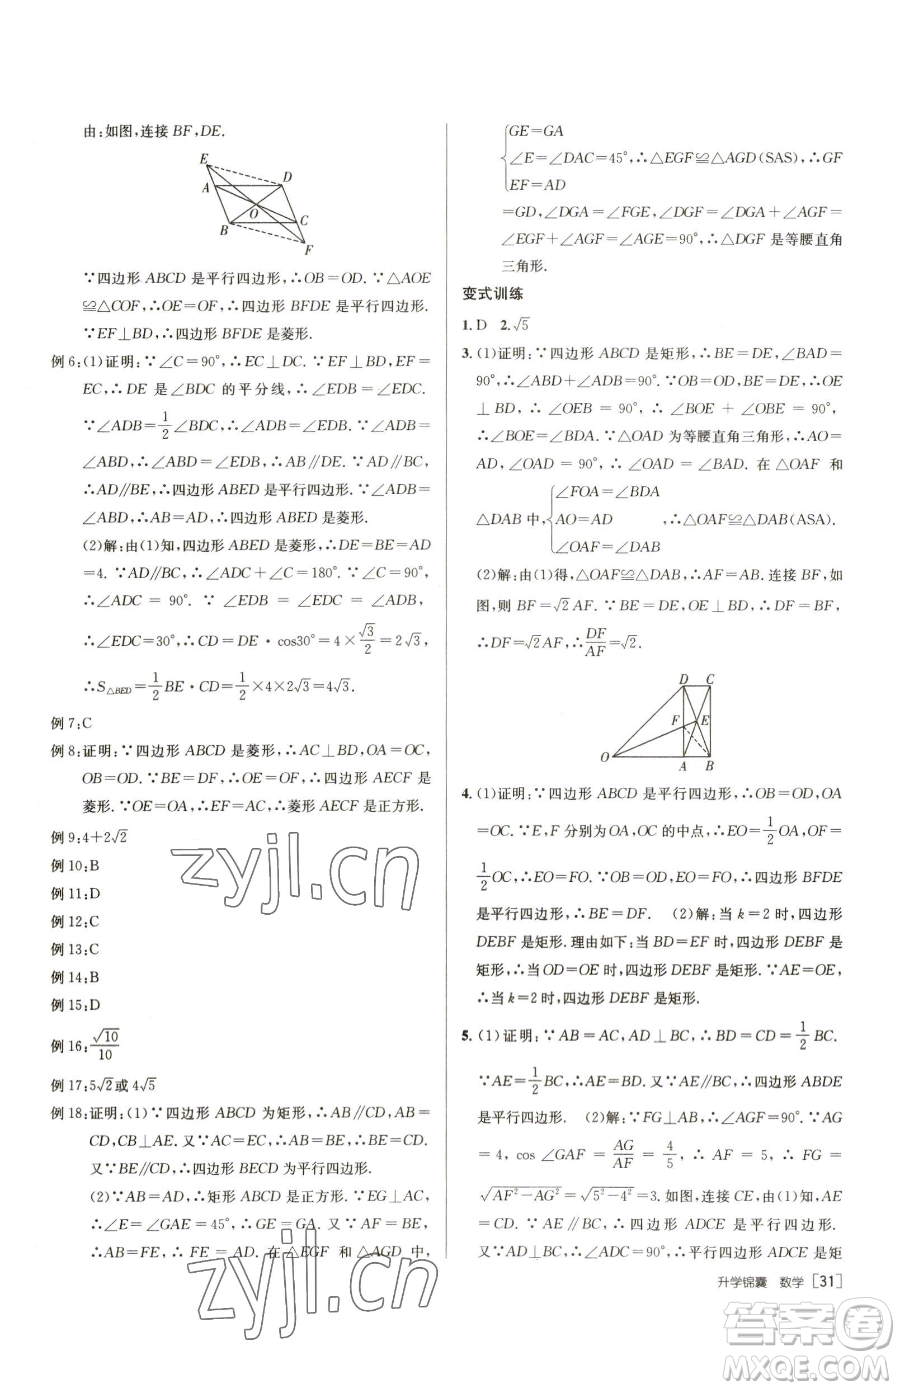 由:如图,连接 BF,DE.
E
A
D
O
B
C
F
∵四边形 ABCD 是平行四边形,∴OB=OD. ∵△AOE
≌△COF,∴OE=OF,∴四边形 BFDE 是平行四边形.
∵EF⊥BD,∴四边形 BFDE 是菱形.
例 6:(1)证明:∵∠C=90°,∴EC⊥DC. ∵EF⊥BD,EF=
EC,∴DE 是∠BDC 的平分线,∴∠EDB=∠EDC.
∵∠ADB=1/2∠BDC,∴∠ADB=∠EDB. ∵∠ADB=
∠ABD,∴∠ABD=∠EDB,∴AB∥DE. ∵AD∥BC,
∴AD∥BE,∴四边形 ABED 是平行四边形. ∵∠ADB=
∠ABD,∴AB=AD,∴四边形 ABED 是菱形.
(2)解:由(1)知,四边形 ABED 是菱形,∴DE=BE=AD
=4. ∵AD∥BC,∴∠ADC+∠C=180°. ∵∠C=90°,
∴∠ADC=90°. ∵∠EDB=∠EDC=∠ADB,
∴∠EDC=30°,∴CD=DE·cos30°=4×√3/2=2√3,
∴S△BED=1/2BE·CD=1/2×4×2√3=4√3.
例 7:C
例 8:证明:∵四边形 ABCD 是菱形,∴AC⊥BD,OA=OC,
OB=OD. ∵BE=DF,∴OE=OF,∴四边形 AECF 是
菱形. ∵OE=OA,∴EF=AC,∴菱形 AECF 是正方形.
例 9:4+2√2
例 10:B
例 11:D
例 12:C
例 13:C
例 14:B
例 15:D
例 16:√10/10
例 17:5√2或 4√5
例 18:证明:(1)∵四边形 ABCD 为矩形,∴AB∥CD,AB=
CD,CB⊥AE. 又∵AC=EC,∴AB=BE,∴BE=CD.
又∵BE∥CD,∴四边形 BECD 为平行四边形.
(2)∵AB=AD,∴矩形 ABCD 是正方形. ∵EG⊥AC,
∴∠E=∠GAE=45°,∴GE=GA. 又∵AF=BE,
∴AB=FE,∴FE=AD. 在△EGF 和△AGD 中,
{GE=GA
∠E=∠DAC=45°,∴△EGF≌△AGD(SAS),∴GF
EF=AD
=GD,∠DGA=∠FGE,∴∠DGF=∠DGA+∠AGF=
∠EGF+∠AGF=∠AGE=90°,∴△DGF 是等腰直角
三角形.
变式训练
1. D 2. √5
3. (1)证明:∵四边形 ABCD 是矩形,∴BE=DE,∠BAD=
90°,∴∠ABD+∠ADB=90°. ∵BE=DE,∴OE
⊥BD,∴∠OEB=90°,∴∠BOE+∠OBE=90°,
∴∠BOE=∠BDA. ∵△OAD 为等腰直角三角形,∴AO=
AD,∠OAD=90°,∴∠OAD=∠BAD. 在△OAF 和
{∠FOA=∠BDA
△DAB 中, AO=AD ,∴△OAF≌△DAB(ASA).
∠OAF=∠DAB
(2)解:由(1)得,△OAF≌△DAB,∴AF=AB. 连接 BF,如
图,则 BF=√2AF. ∵BE=DE,OE⊥BD,∴DF=BF,
∴DF=√2AF,∴DF/AF=√2.
D
C
F
E
O
A
B
4. (1)证明:∵四边形 ABCD 是平行四边形,∴OB=OD,OA
=OC. ∵E,F 分别为 OA,OC 的中点,∴EO=1/2OA,OF=
1/2OC,∴EO=FO. ∵EO=FO,OB=OD,∴四边形 BFDE
是平行四边形,∴BE=DF. (2)解:当 k=2 时,四边形
DEBF 是矩形. 理由如下:当 BD=EF 时,四边形 DEBF 是
矩形,∴当 OD=OE 时,四边形 DEBF 是矩形. ∵AE=OE,
∴当 k=2 时,四边形 DEBF 是矩形.
5. (1)证明:∵AB=AC,AD⊥BC,∴BD=CD=1/2BC.
∵AE=1/2BC,∴AE=BD. 又∵AE∥BC,∴四边形 ABDE
是平行四边形. (2)解:∵FG⊥AB,∴∠AGF=90°. ∵AG
=4,cos∠GAF=AG/AF=4/5,∴AF=5,∴FG=
√AF²-AG²=√5²-4²=3. 如图,连接 CE,由(1)知,AE
=CD. ∵AE∥BC,∴四边形 ADCE 是平行四边形.
又∵AD⊥BC,∴∠ADC=90°,∴平行四边形 ADCE 是矩
升学锦囊 数学 [31]
zyjl.cn
zyjl.cn
答案圈
MXQE.COM